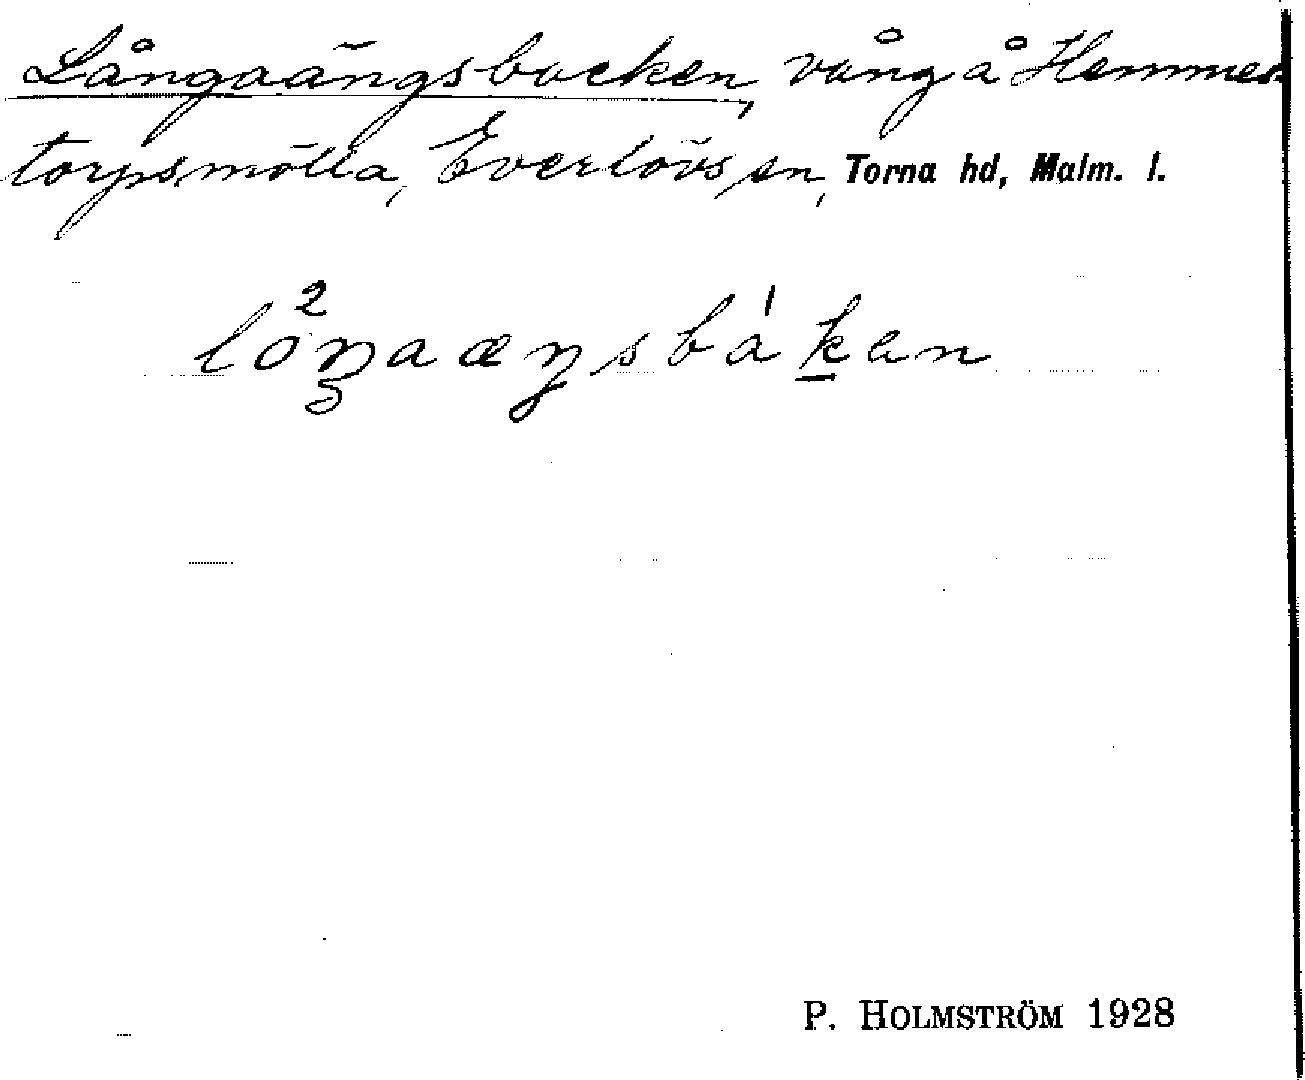 Långaängsbacken, vång å Hemmes
torpsmölla, Everlövs sn, Torna hd, Malm. l.
2 1
lôŋaæŋsbakan
P. HOLMSTRÖM 1928